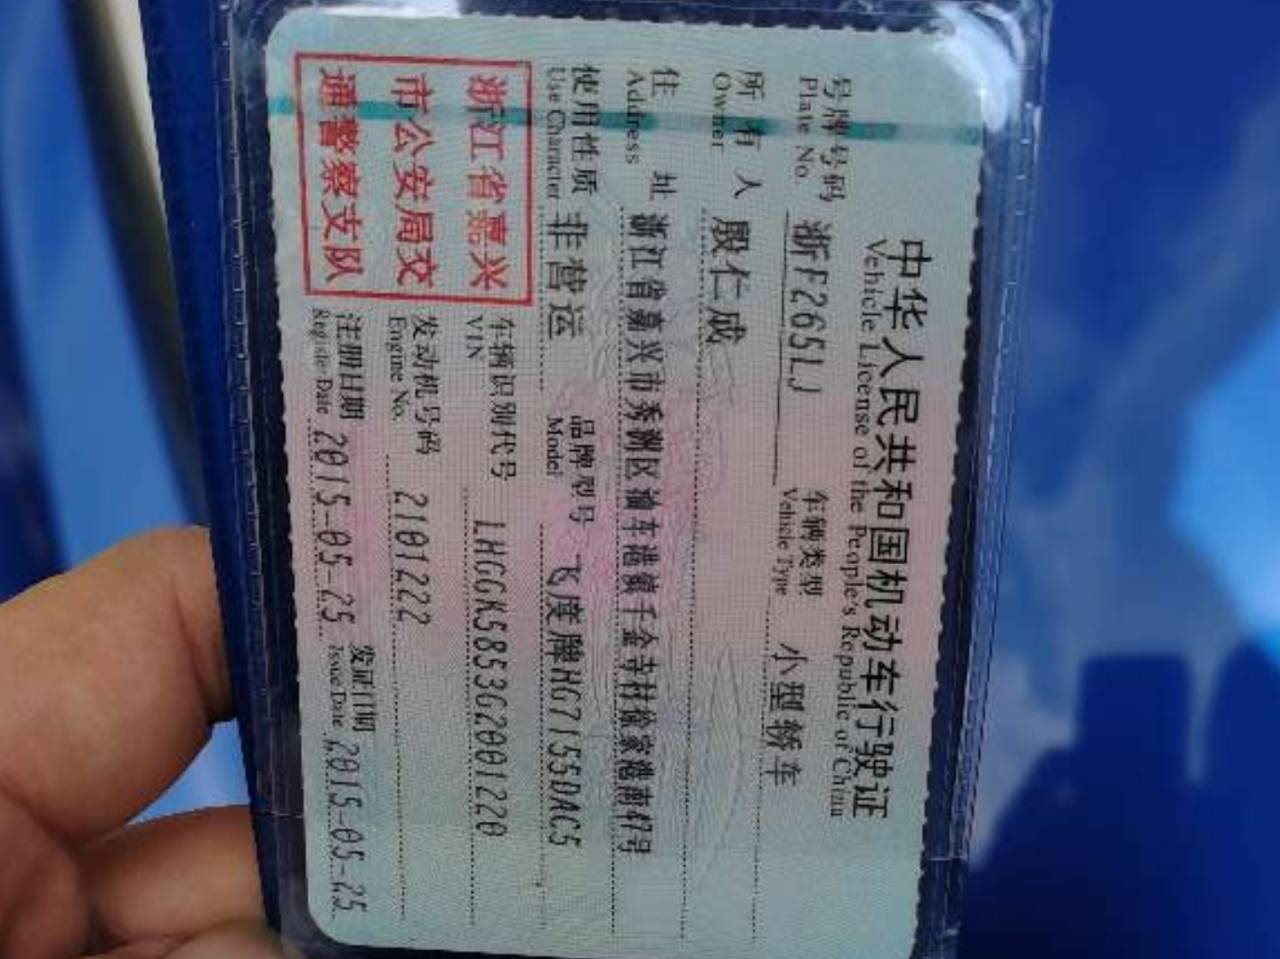 中华人民共和国机动车行驶证
Vehicle License of the People's Republic of China
号牌号码 浙F265LJ 车辆类型 小型轿车
Plate No. Vehicle Type
所有人 殷仁成
Owner
住址 浙江省嘉兴市秀洲区油车港镇千金寺村徐家港南47号
Address
使用性质 非营运 品牌型号 飞度牌HG7155DAC5
Use Character Model
浙江省嘉兴
市公安局交
通警察支队
车辆识别代号 LHGGK5853G2001220
VIN
发动机号码 2101222
Engine No.
注册日期 2015-05-25 发证日期 2015-05-25
Register Date Issue Date